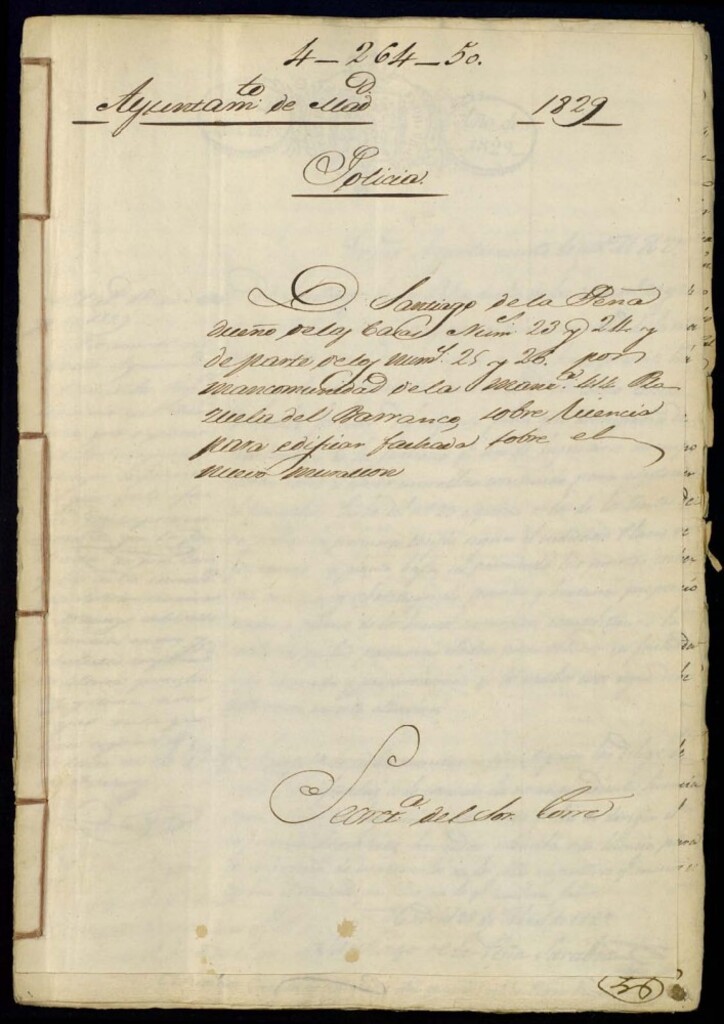 4-264-50.
Ayuntam.to de Mad.D 1829
Policia.
D. Santiago de la Peña
dueño de las Casas Num.s 23 y 24 y
de parte de los num.s 25 y 26 por
mancomunidad de la manz.a 44 Pla-
zuela del Barranco, sobre licencia
para edificar fachada sobre el
nuevo murallon
Secret.a del Sor. Corr
56